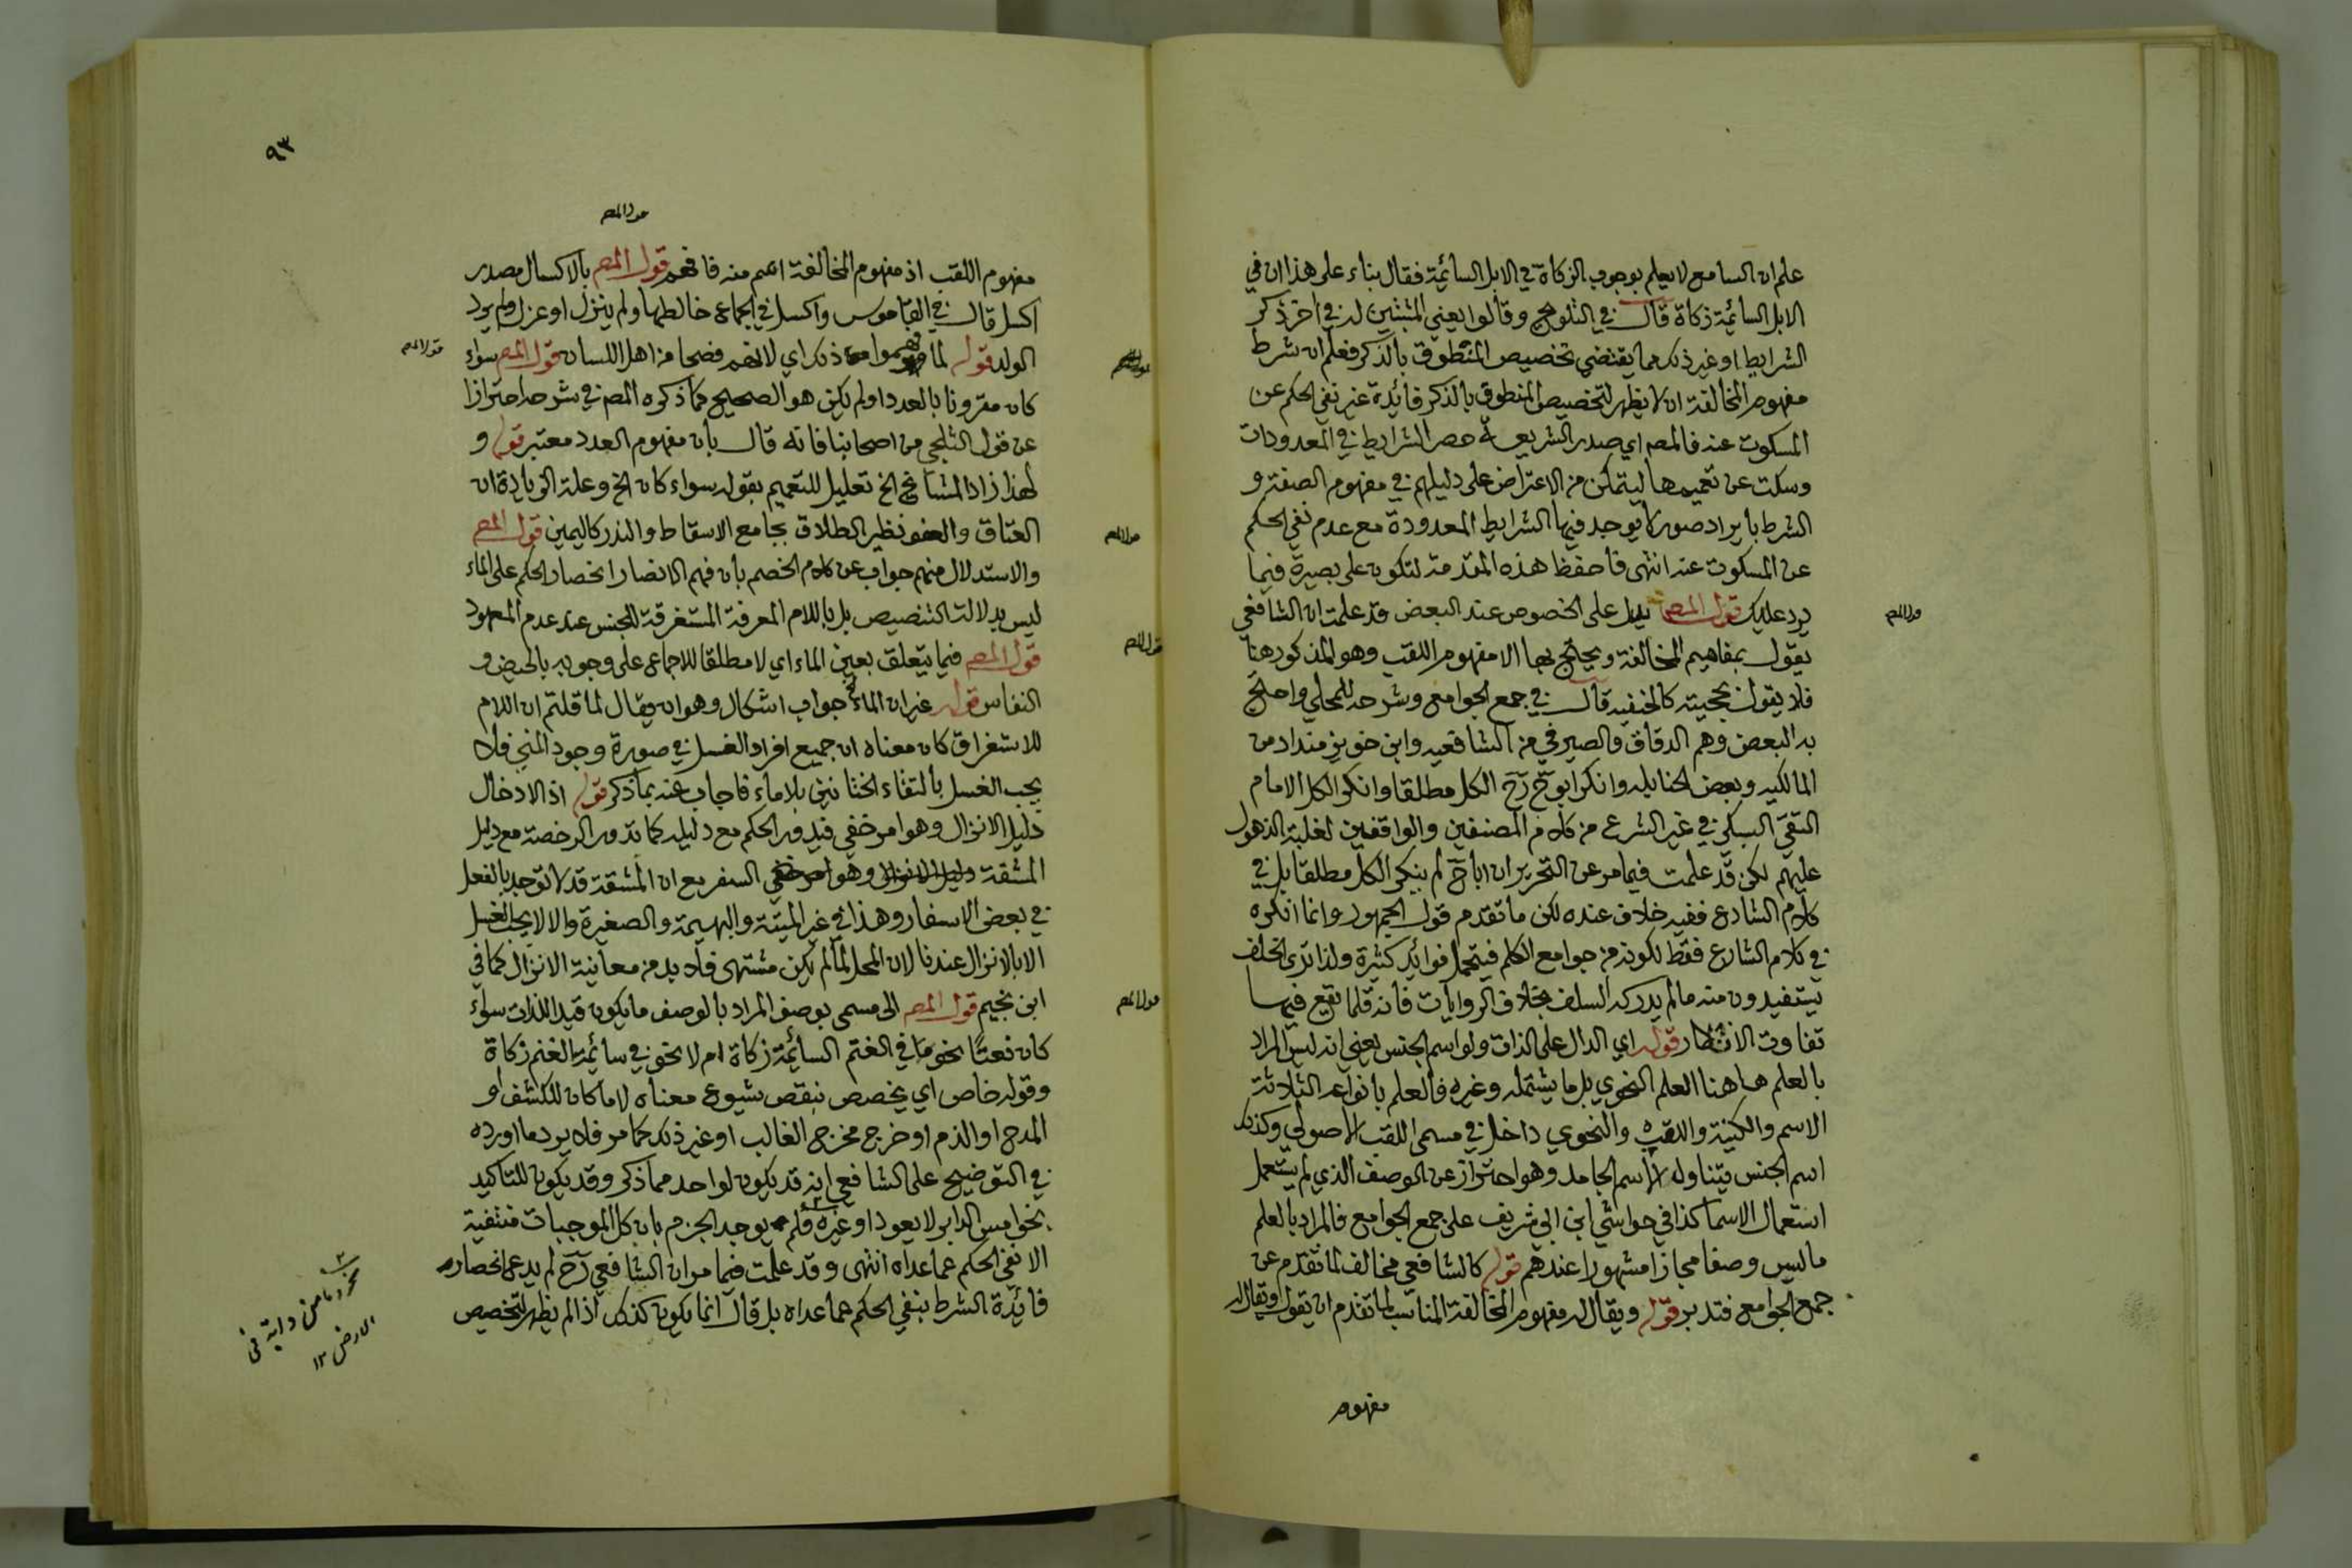 علم ان السامع لا يعلم بوجوب الزكاة في الابل السائمة فقال بناء على هذا ان في
الابل السائمة زكاة قال في التلويح وقالوا يعني المثبتين له في اخر ذكر
الشرايط او غير ذلك مما يقتضي تخصيص المنطوق بالذكر فعلم ان شرط
مفهوم المخالفة ان لا يظهر لتخصيص المنطوق بالذكر فائدة غير نفي الحكم عن
المسكوت عنه فالمص اي صدر الشريعة حصر الشرايط في المعدودات
وسكت عن تعميمها ليتمكن من الاعتراض على دليلهم في مفهوم الصفة و
الشرط بايراد صور لا يوجد فيها الشرايط المعدودة مع عدم نفي الحكم
عن المسكوت عنه انتهى فاحفظ هذه المقدمة لتكون على بصيرة فيما
يرد عليك قول المص يدل على الخصوص عند البعض قد علمت ان الشافعي
يقول بمفاهيم المخالفة ويحتج بها الا مفهوم اللقب وهو المذكور هنا
فلا يقول بحجيته كالحنفية قال في جمع الجوامع وشرحه للمحلي واحتج
به البعض وهم الدقاق والصيرفي من الشافعية وابن خويز منداد من
المالكية وبعض الحنابلة وانكر ابو ح رح الكل مطلقا وانكر الكل الامام
التقي السبكي في غير الشرع من كلام المصنفين والواقفين لغلبة الذهول
عليهم لكن قد علمت فيما مر عن التحرير ان ابا ح لم ينكر الكل مطلقا بل في
كلام الشارع ففيه خلاف عنده لكن ما تقدم قول الجمهور وانما انكروه
في كلام الشارع فقط لكونه من جوامع الكلم فيتحمل فوائد كثيرة ولذا ترى الخلف
يستفيدون منه ما لم يدركه السلف بخلاف الروايات فانه قلما يقع فيها
تفاوت الانظار قوله اي الدال على الذات ولو اسم الجنس يعني انه ليس المراد
بالعلم هاهنا العلم النحوي بل ما يشتمله وغيره فالعلم بانواعه الثلاثة
الاسم والكنية واللقب النحوي داخل في مسمى اللقب الاصولي وكذلك
اسم الجنس يتناوله الاسم الجامد وهو احتراز عن الوصف الذي لم يستعمل
استعمال الاسما كذا في حواشي ابن ابي شريف على جمع الجوامع فالمراد بالعلم
ما ليس وصفا مجازا مشهورا عندهم قوله كالشافعي مخالف لما تقدم عن
جمع الجوامع فتدبر قوله ويقال له مفهوم المخالفة المناسب لما تقدم ان يقول ويقال له
مفهوم
قول المص
٩٣
قول المص
مفهوم اللقب اذ مفهوم المخالفة اعم منه فافهم قول المص بالاكسال مصدر
اكسل قال في القاموس واكسل في الجماع خالطها ولم ينزل او عزل ولم يرد
الولد قوله لما فهموا ذلك اي لانهم فصحا من اهل اللسان قول المص سواء
كان مقرونا بالعدد او لم يكن هو الصحيح كما ذكره المص في شرحه احترازا
عن قول الثلجي من اصحابنا فانه قال بان مفهوم العدد معتبر قوله و
لهذا زاد المشايخ الخ تعليل للتعميم بقوله سواء كان الخ وعلة الزيادة ان
العتاق والعفو نظير الطلاق بجامع الاسقاط والنذر كاليمين قول المص
والاستدلال منهم جواب عن كلام الخصم بان فهم الانصار انحصار الحكم على الماء
ليس بدلالة التنصيص بل باللام المعرفة المستغرقة للجنس عند عدم المعهود
قول المص فيما يتعلق بعين الماء اي لا مطلقا للاجماع على وجوبه بالحيض و
النفاس قوله غير ان الماء الخ جواب اشكال وهو ان يقال لما قلتم ان اللام
للاستغراق كان معناه ان جميع افراد الغسل في صورة وجود المني فلا
يجب الغسل بالتقاء الختانين بلا ماء فاجاب عنه بما ذكر قوله اذ الادخال
دليل الانزال وهو امر خفي فيدور الحكم مع دليله كما تدور الرخصة مع دليل
المشقة وهو السفر مع ان المشقة قد لا توجد بالفعل
في بعض الاسفار وهذا في غير الميتة والبهيمة والصغيرة والا لا يجب الغسل
الا بالانزال عندنا لان المحل لما لم يكن مشتهى فلا بد من معاينة الانزال كما في
ابن نجيم قول المص الى مسمى بوصف المراد بالوصف ما يكون قيدا للذات سواء
كان نعتا نحو ما في الغنم السائمة زكاة ام لا نحو في سائمة الغنم زكاة
وقوله خاص اي يخصص بنقص شيوع معناه لا ما كان للكشف او
المدح او الذم او خرج مخرج الغالب او غير ذلك كما مر فلا يرد ما اورده
في التوضيح على الشافعي انه قد يكون لواحد مما ذكر وقد يكون للتاكيد
نحو امس الدابر لا يعود او غيره فلم يوجد الجزم بان كل الموجبات منتفية
الا نفي الحكم عما عداه انتهى وقد علمت فيما مر ان الشافعي رح لم يدع انحصار
فائدة الشرط بنفي الحكم عما عداه بل قال انما يكون كذلك اذا لم يظهر لتخصيص
قول المص
قول المص
قول المص
قول المص
نحو وما من دابة في
الارض ١٢